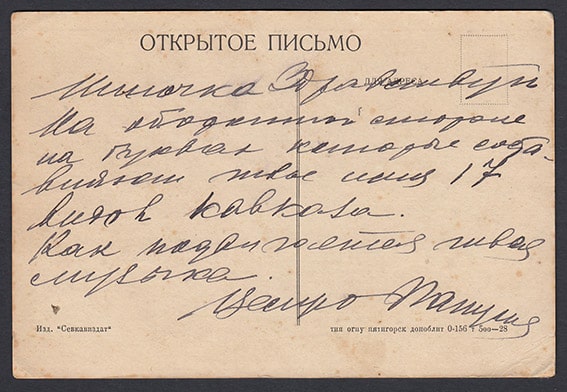 ОТКРЫТОЕ ПИСЬМО
ДЛЯ АДРЕСА
Миночка Здравствуй
На оборотной стороне
на буквах которые соста-
вляют твое имя 17
видов Кавказа.
Как подвигается твоя
музыка.
Целую Папуля
Изд. "Севкавиздат"
тип огпу пятигорск доноблит 0-156 т 500—28